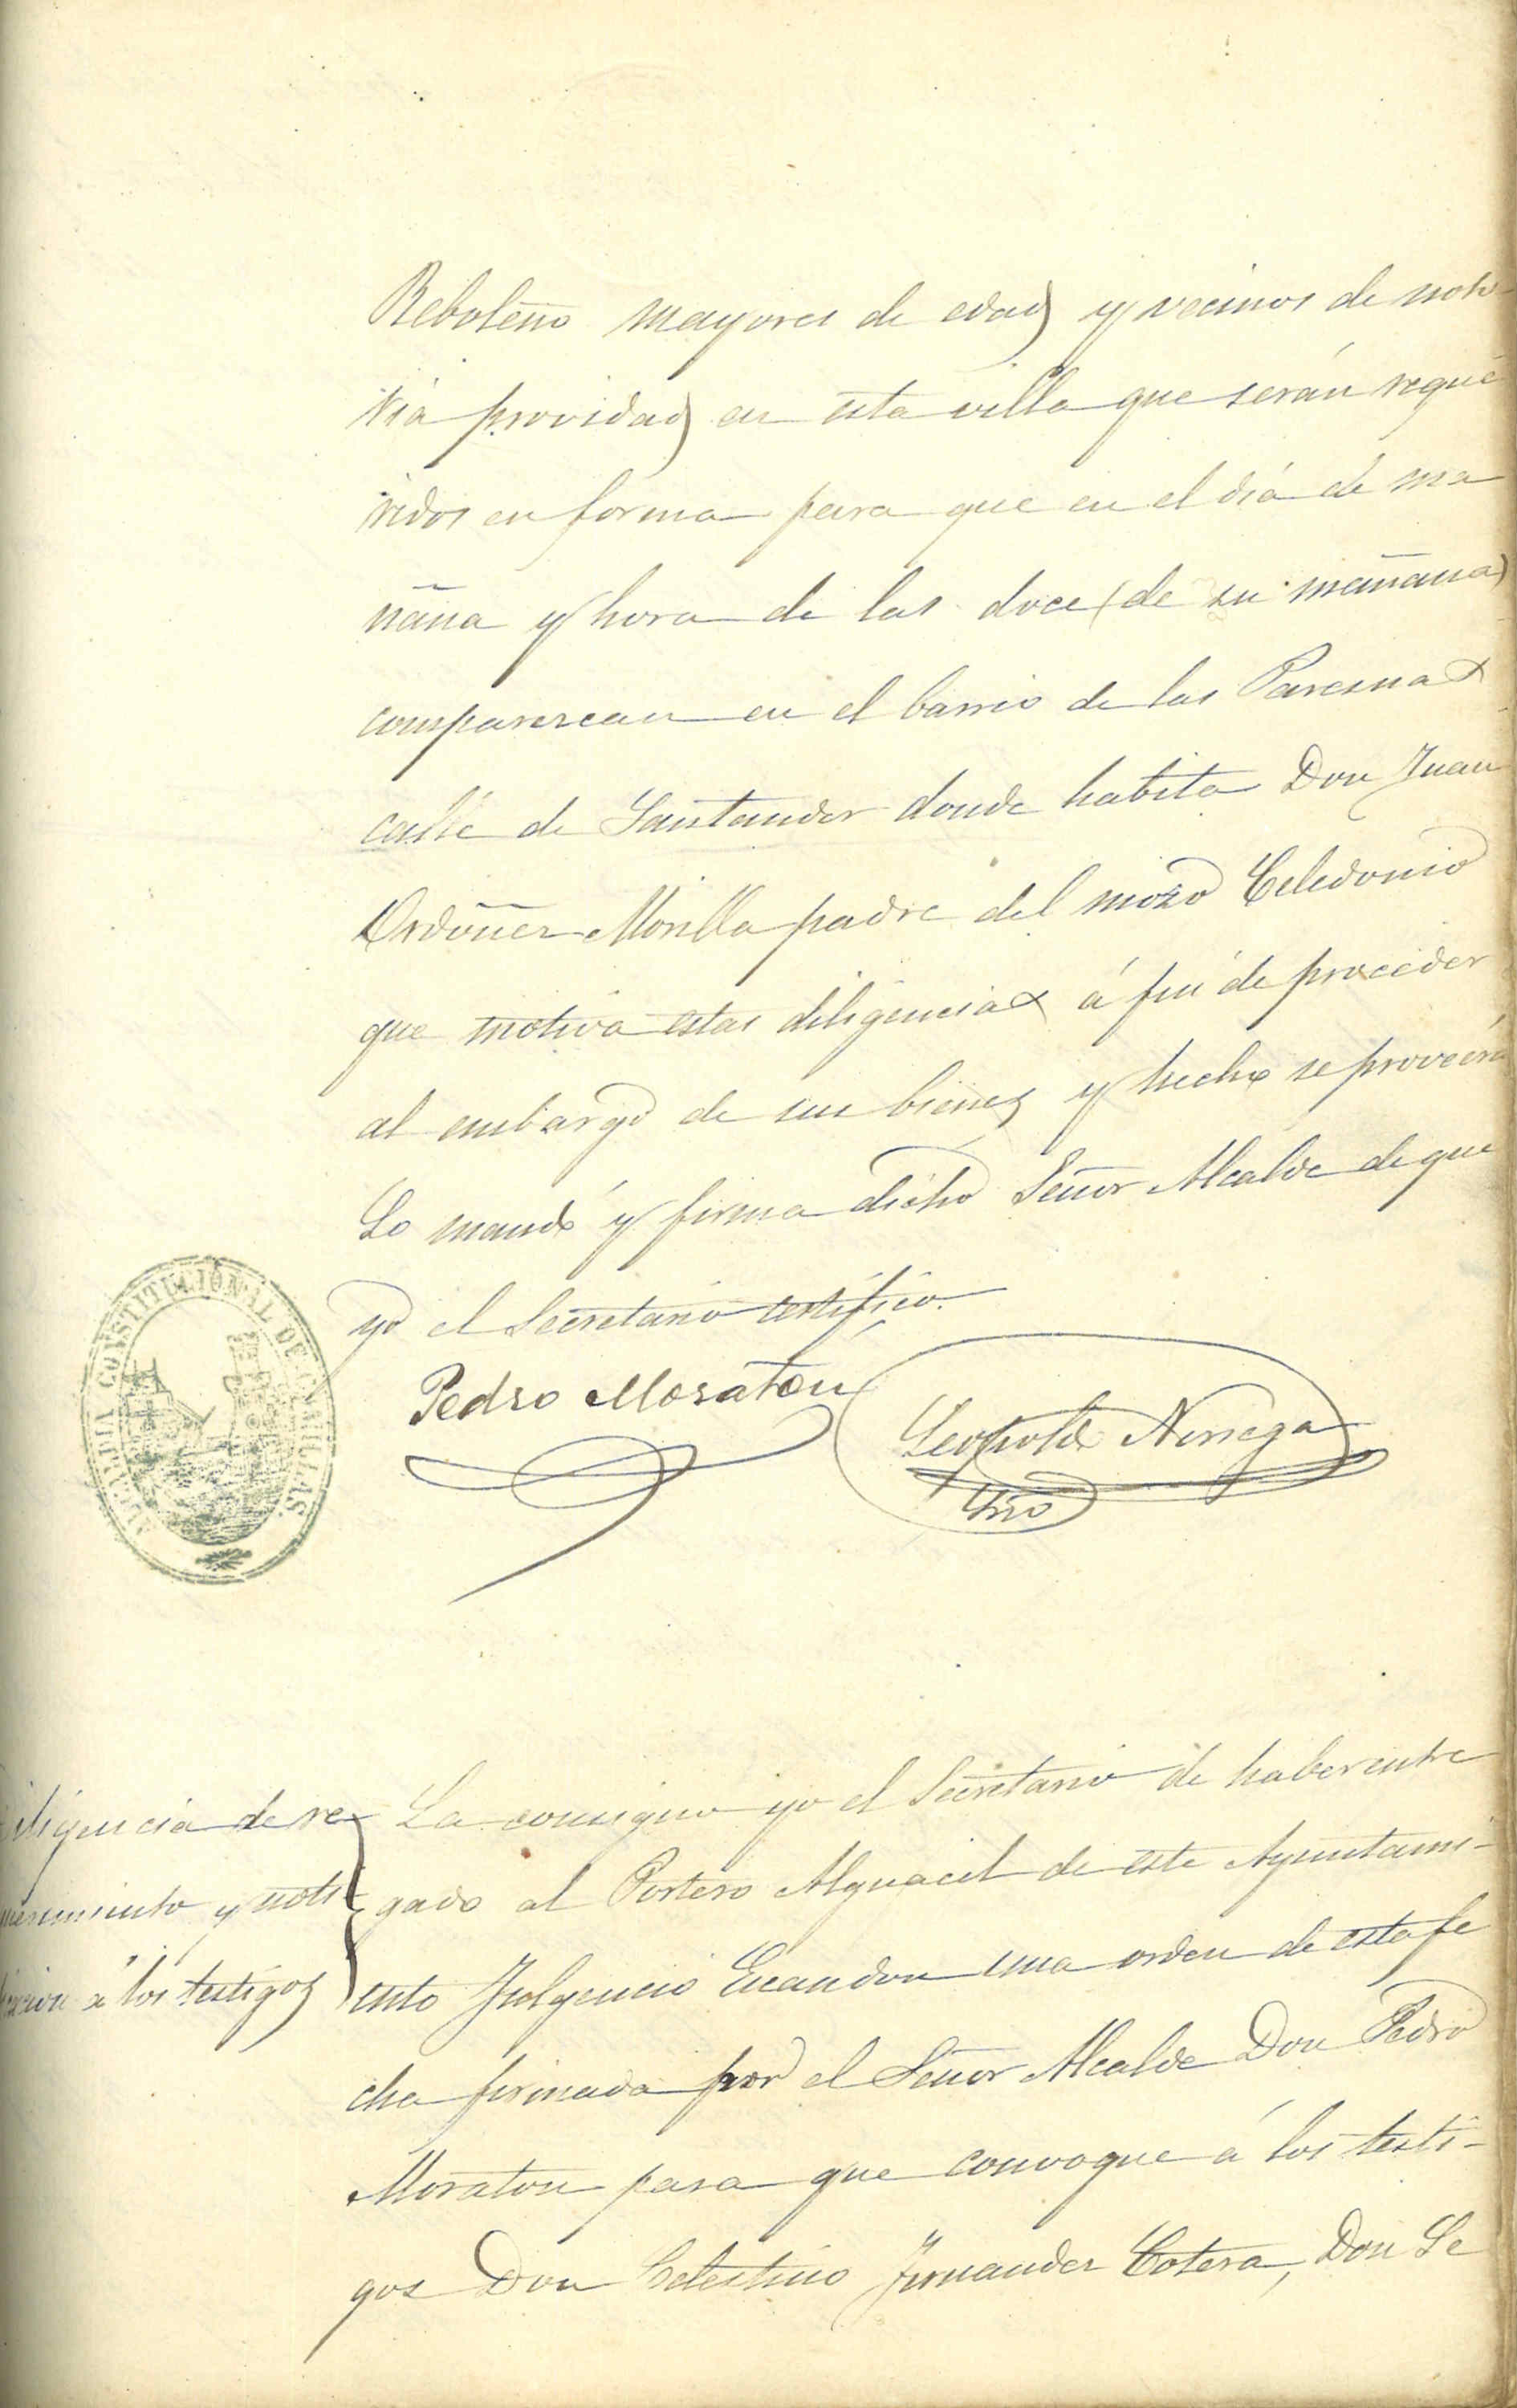 Reboleño mayores de edad y vecinos de noto
ria providad en esta villa que serán reque
ridos en forma para que en el día de ma
ñana y hora de las doce (de su mañana)
comparezcan en el barrio de las
calle de Santander donde habita Don Juan
Ordóñez Morilla padre del mozo Celedonio
que motiva estas diligencias á fin de proceder
al embargo de sus bienes y hecho se proveerá
Lo mandó y firma dicho Señor Alcalde de que
yo el Secretario certifico.
Pedro Moraton
Leopoldo Noriega
Srio
ALCALDIA CONSTITUCIONAL DE COMILLAS
Diligencia de re
querimiento y noti
ficacion á los testigos
La consigno yo el Secretario de haber entre
gado al Portero Alguacil de este Ayuntami-
ento Fulgencio Escandon una orden de esta fe
cha firmada por el Señor Alcalde Don Pedro
Moraton para que convoque á los testi-
gos Don Celestino Fernandez Cotera, Don Se